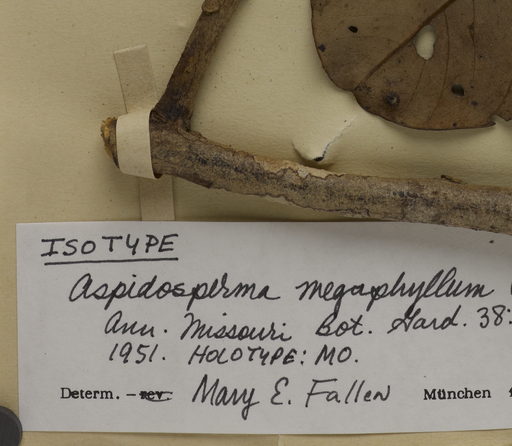 ISOTYPE
Aspidosperma megaphyllum
Ann. Missouri Bot. Gard. 38:
1951. HOLOTYPE: MO.
Determ. – rev. Mary E. Fallen München